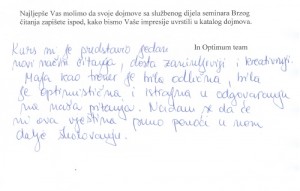 Najljepše Vas molimo da svoje dojmove sa službenog dijela seminara Brzog
čitanja zapišete ispod, kako bismo Vaše impresije uvrstili u katalog dojmova.
In Optimum team
Kurs mi je predstavio jedan
novi način čitanja, dosta zanimljiviji i kreativniji.
Maja kao trener je bila odlična, bila
je optimistična i istrajna u odgovaranju
na naša pitanja. Nadam se da će
mi ova vještina puno pomoći u mom
dalje školovanju.